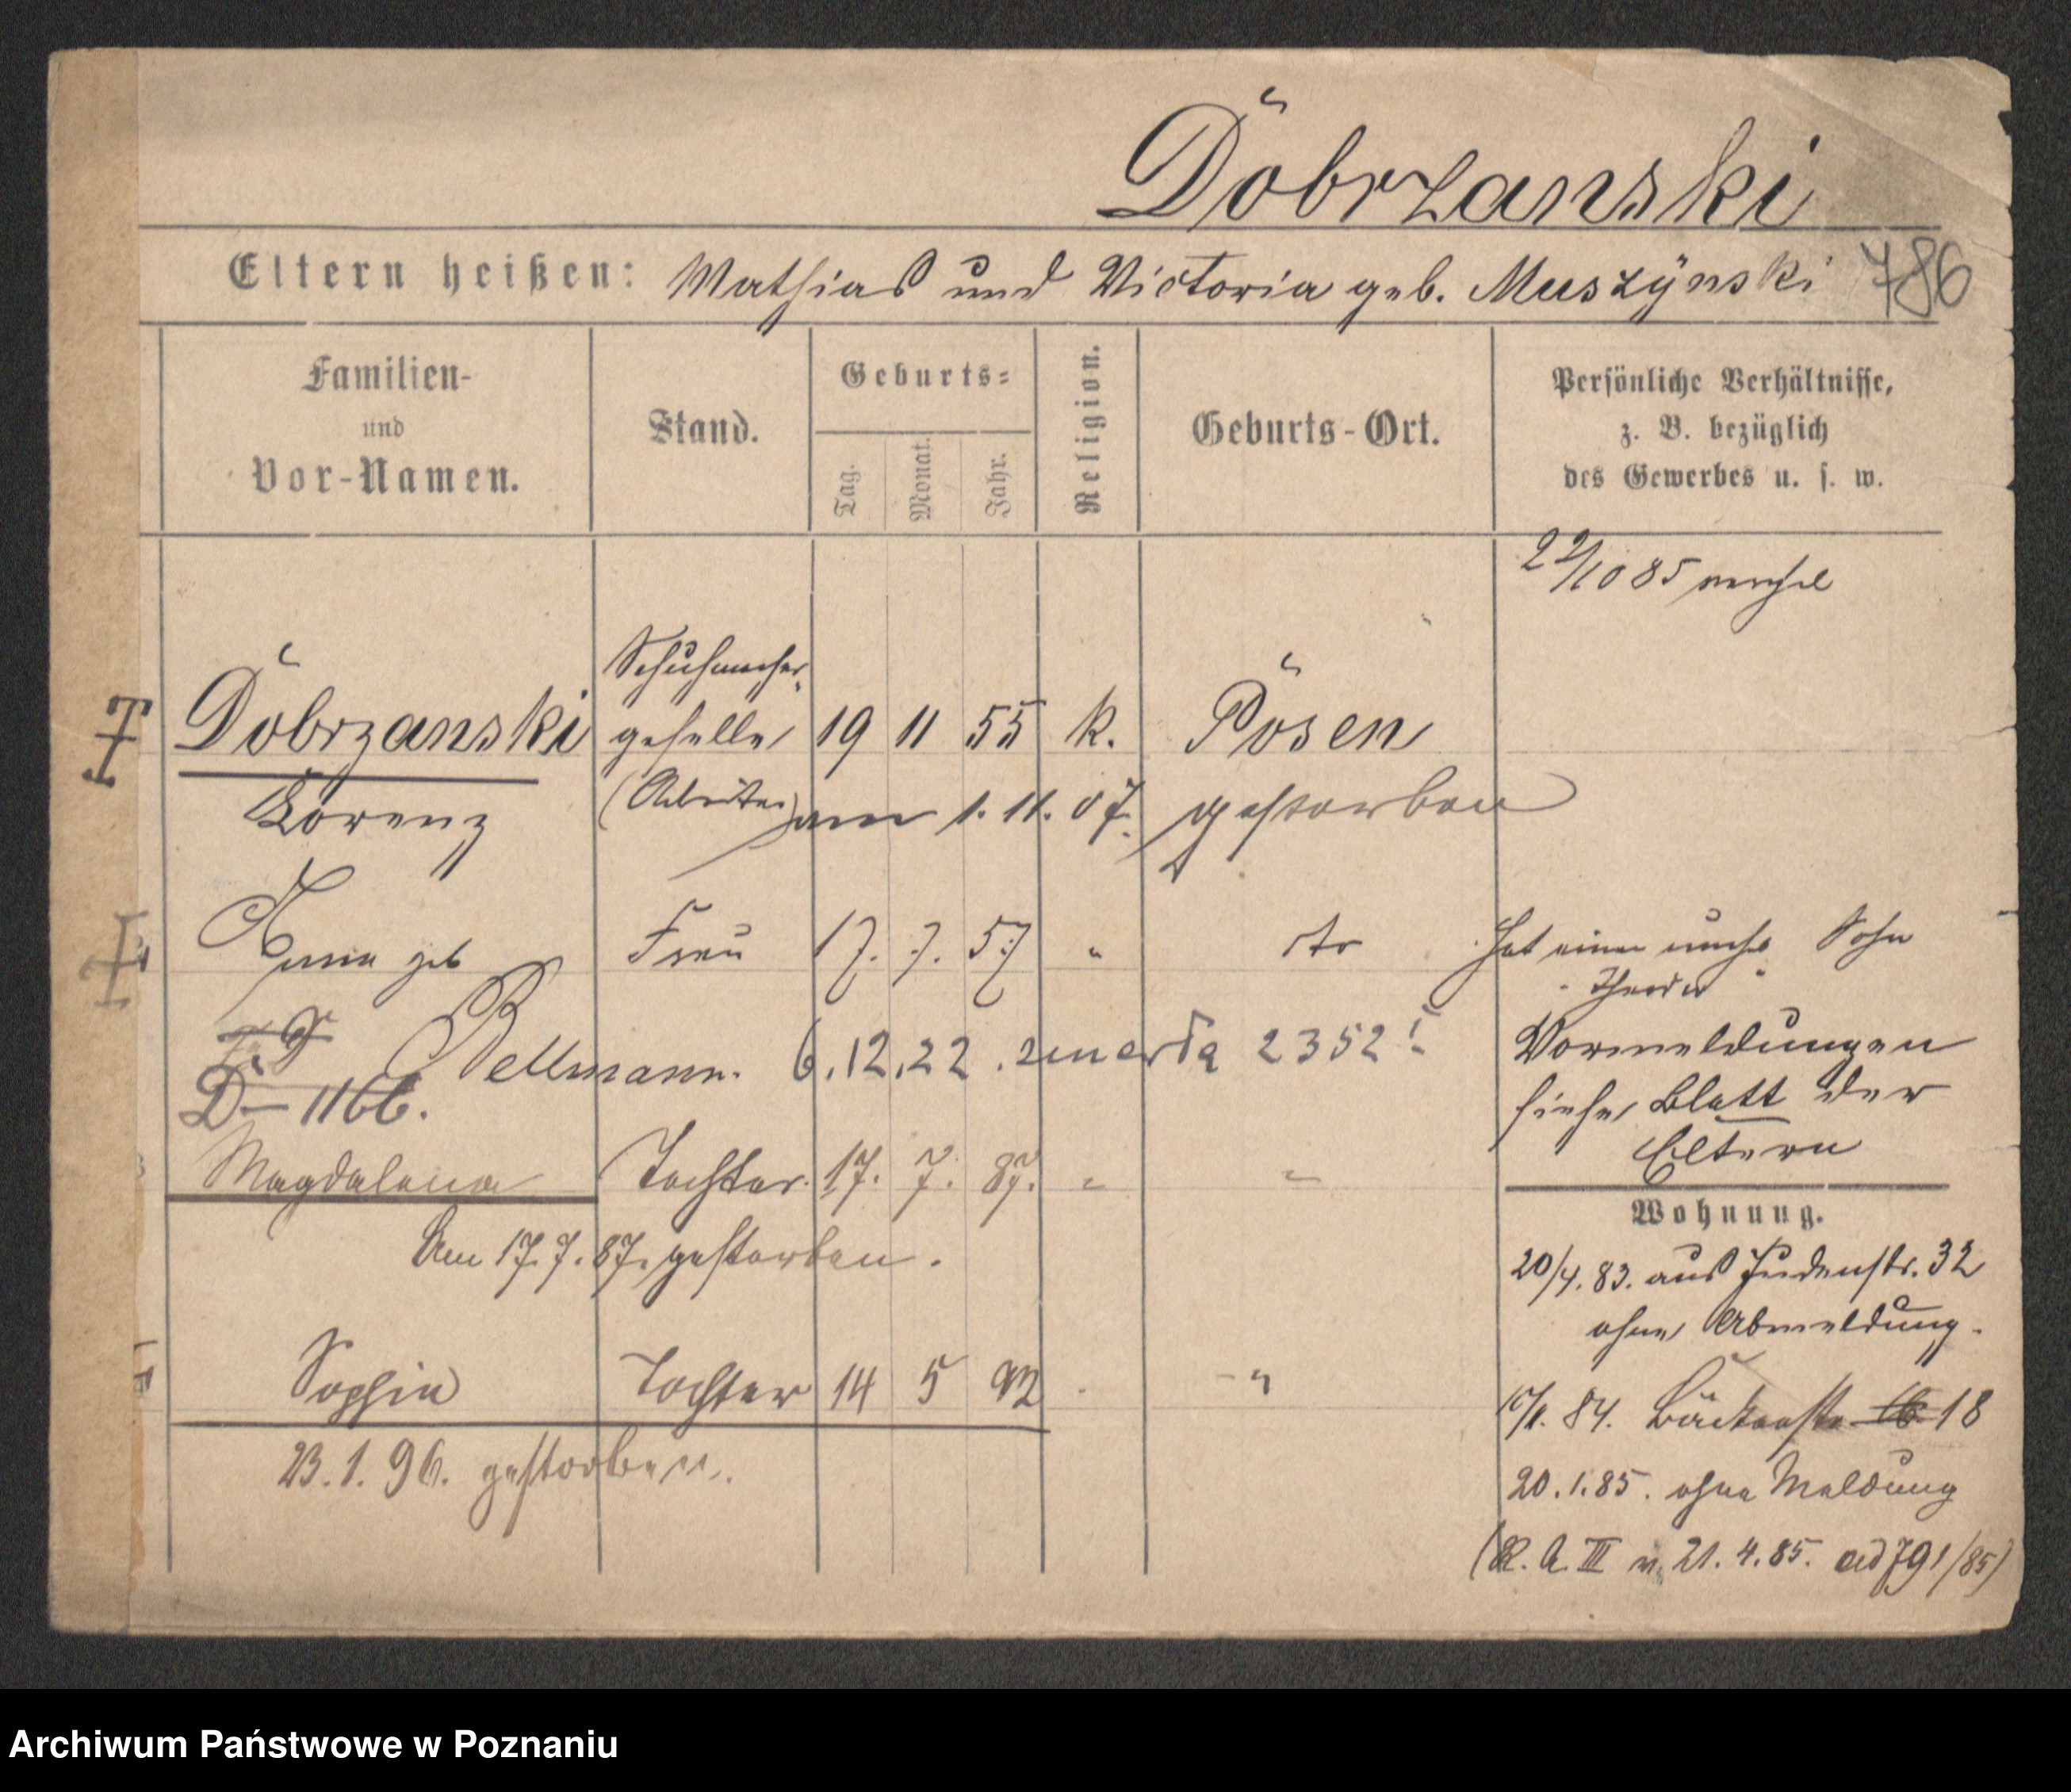 Dobrzanski
Eltern heißen: Mathias und Victoria geb. Muszÿnski 786
Familien-
und
Vor-Namen.
Stand.
Geburts-
Tag.
Monat.
Jahr.
Religion.
Geburts-Ort.
Persönliche Verhältnisse,
z. B. bezüglich
des Gewerbes u. s. w.
22/10 85
Schuhmacher
Dobrzanski geselle 19 11 55 k. Posen
Lorenz (Arbeiter) am 1. 11. 07. gestorben
Frau 17. 7. 57 " dto Hat einen unehe Sohn
geb "Theodor"
Bellmann. 6.12.22. zmarła 2352
D - 1166.
Vormeldungen
siehe Blatt der
Eltern
Magdalena Tochter. 17. 7. 87. " "
Am 17.7.87. gestorben.
Wohnung.
20/4. 83. aus Judenstr. 32
ohne Abmeldung.
Sophie Tochter 14 5 92 "
84. Bäckerstr. 16 18
23.1.96. gestorben.
20.1.85. ohne Meldung
(R. A. III v. 21. 4. 85. ad 791/85)
Archiwum Państwowe w Poznaniu